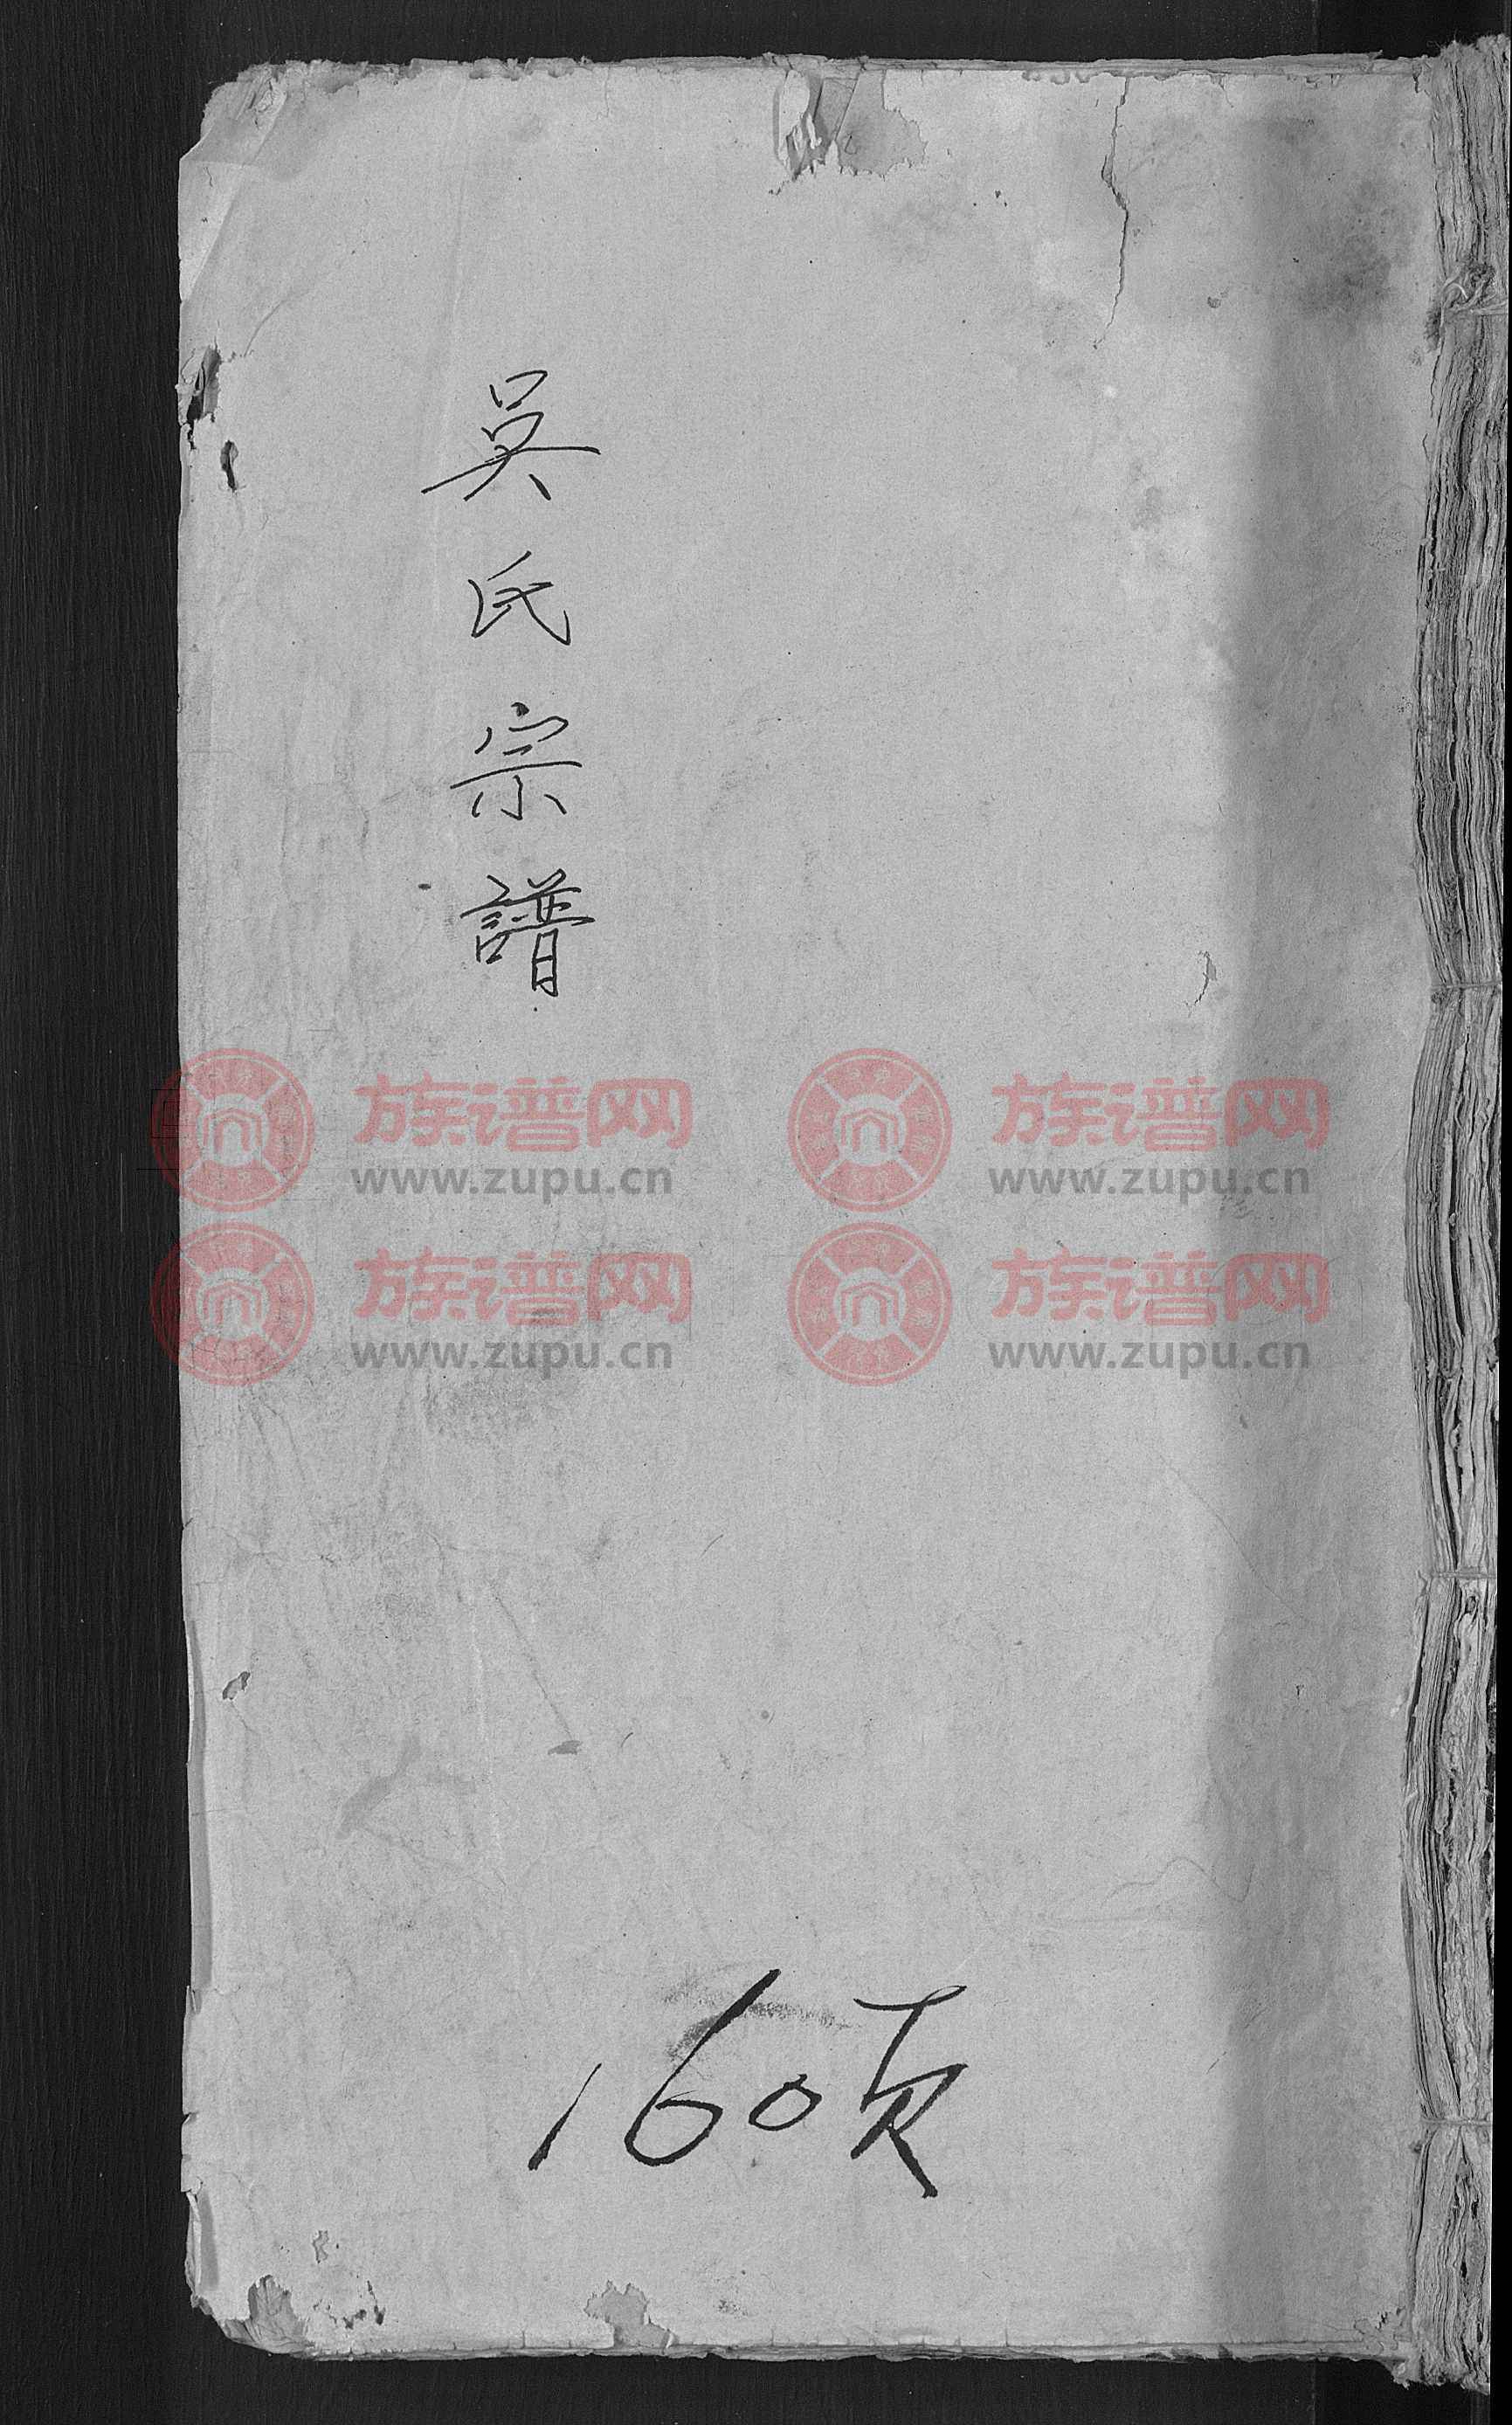 吳氏宗譜
族谱网 族谱网
www.zupu.cn www.zupu.cn
族谱网 族谱网
www.zupu.cn www.zupu.cn
160页